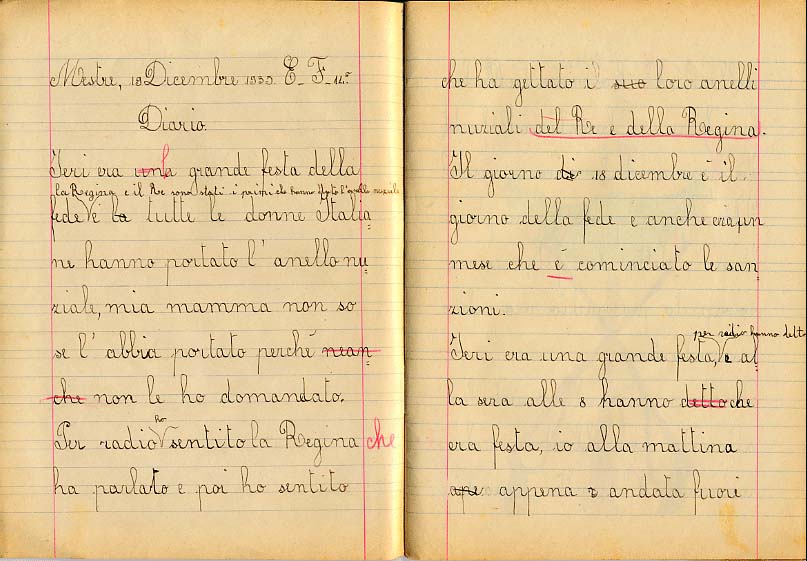 Mestre, 18 Dicembre 1935. E_ F_ 14º
Diario.
Ieri era una grande festa della
la Regina e il Re sono stati i primi che hanno l'anello nuziale
fede e la tutte le donne Italia=
ne hanno portato l'anello nu=
ziale, mia mamma non so
se l'abbia portato perché nean=
che non le ho domandato.
Per radio ho sentito la Regina che
ha parlato e poi ho sentito
che ha gettato i suo loro anelli
nuziali del Re e della Regina.
Il giorno di 18 dicembre è il
giorno della fede e anche era un
mese che è cominciato le san=
zioni.
per radio hanno detto
Ieri era una grande festa, e al=
la sera alle 8 hanno detto che
era festa, io alla mattina
ape appena andata fuori